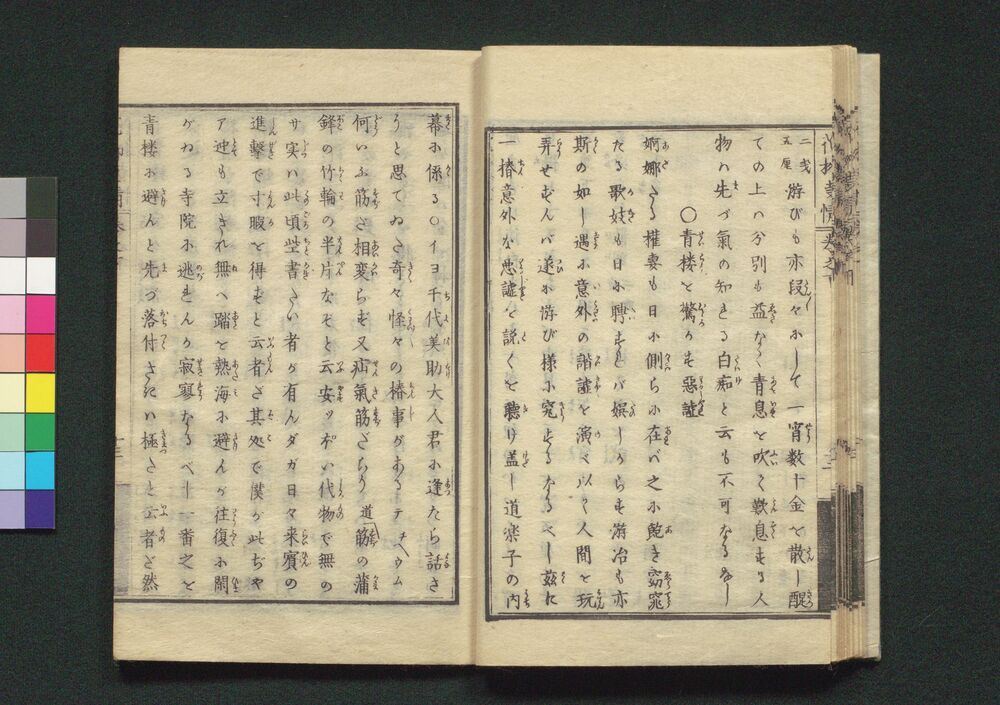 二戔五厘 游びも亦段々にして一宵数十金を散し醒
ての上ハ分別も益なく青息を吹く歎息する人
物ハ先づ氣の知きる白痴と云も不可なるなし
〇青楼を驚かす惡謔
婀娜たる權妻も日に側らに在バ之に飽き窈窕
たる歌妓も日に聘すれバ娯しからず游冶も亦
斯の如し遇に意外の諧謔を演く以く人間を玩
弄せずんバ遂に游び様に窮するなるべし茲に
一椿意外な悪謔を説くを聴け盖し道楽子の内
幕に係る〇イヨ千代美助大人君に逢たら話さ
うと思てゐた奇々怪々の椿事があるテ ヘウム
何いふ筋だ相変らず又疝氣筋だらう 道筋の蒲
鉾の竹輪の半片なぞと云安ッポい代物で無の
サ実ハ此頃些書たい者が有んダガ日々来賓の
進撃で寸暇を得ずと云者さ其処で僕が此ぢや
ア迚も立きれ無へ踏を熱海に避んが往復に閑
がねる寺院に逃まんか寂寥なるべし一番之を
青楼に避んと先づ落付きたハ極さと云者だ然